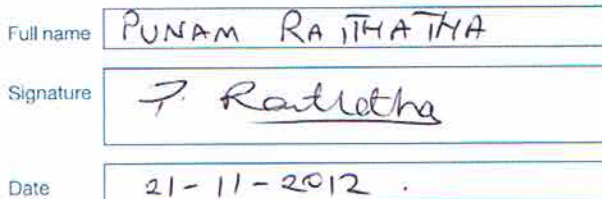 Full name PUNAM RAITHATHA
Signature P. Raithatha
Date 21-11-2012.